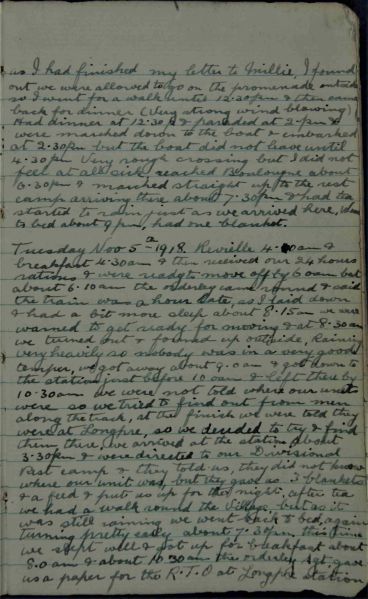 as I had finished my letter to Millie, I found
out we were allowed to go on the promenade outside
so I went for a walk until 12.30pm & then came
back for dinner (Very strong wind blowing)
Had dinner at 12.30 & paraded at 2-pm &
were marched down to the boat & embarked
at 2.30pm but the boat did not leave until
4.30pm Very rough crossing but I did not
feel at all sick, reached Boulougne about
6.30pm & marched straight up to the rest
camp arriving there about 7.30pm & had tea
started to rain just as we arrived here,
to bed about 9pm, had one blanket.
Tuesday Nov 5th 1918. Reveille 4.0am &
breakfast 4.30am & then received our 24 hours
rations & were ready to move off by 6 oam but
about 6.10am the orderly came round & said
the train was a hour late, as I laid down
& had a bit more sleep about 8.15am we were
warned to get ready for moving & at 8.30am
we turned out & formed up outside, Raining
very heavily so nobody was in a very good
temper, we got away about 9.0am & got down to
the station just before 10 oam & left there by
10.30am we were not told where our unit
were so we tried to find out from men
along the track, at the finish we were told they
were at Longpre, so we decided to try & find
them there, we arrived at the station about
3.30pm & were directed to our Divisional
Rest camp & they told us, they did not know
where our unit was, but they gave us 3 blankets
& a feed & put us up for the night, after tea
we had a walk round the Village but as it
was still raining we went back to bed, again
turning pretty early about 7.30pm, this time
we slept well & got up for breakfast about
8.0am & about 10.30am the orderly Sgt gave
us a paper for the R.T.O at Longpre Station